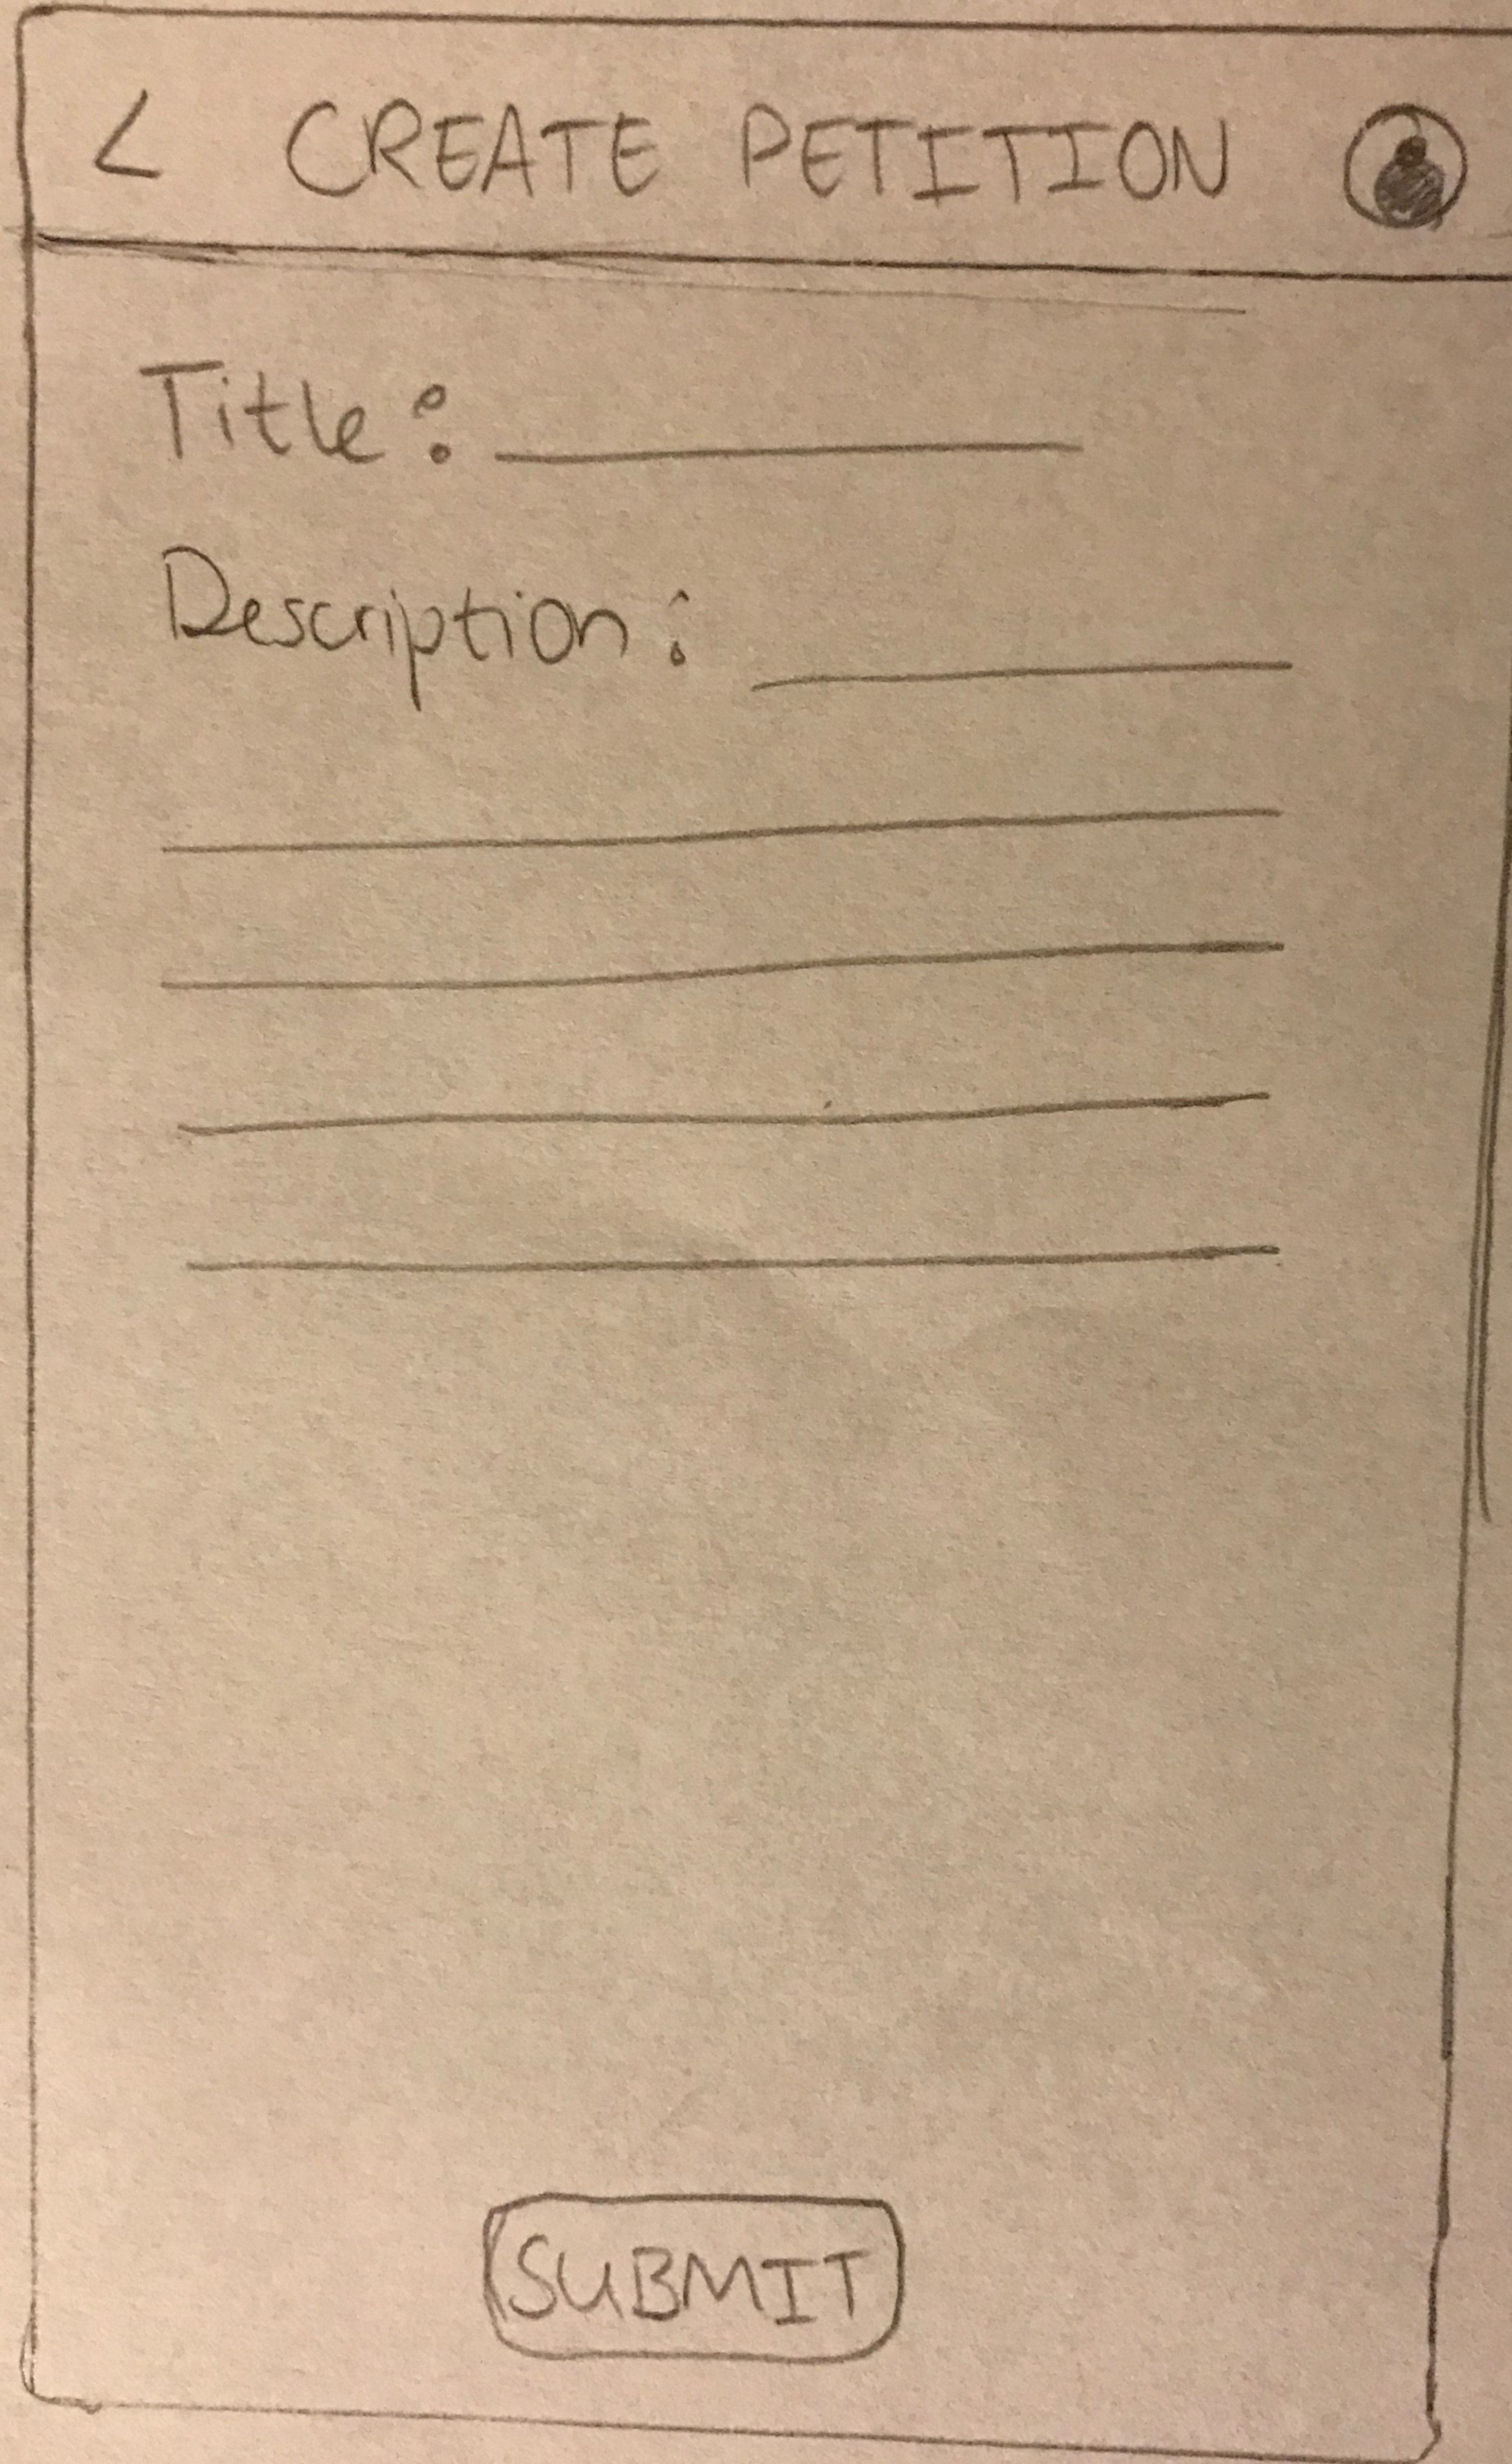 < CREATE PETITION
Title:
Description:
SUBMIT